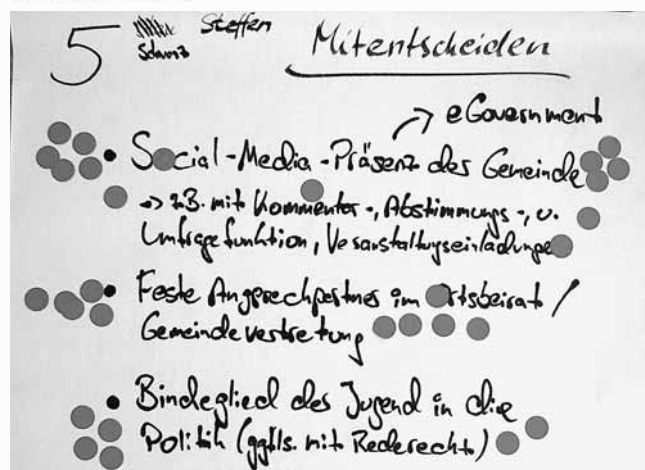 5 Steffen
Mitentscheiden
→ eGovernment
• Social-Media-Präsenz der Gemeinde
→ z.B. mit Kommentar-, Abstimmungs-, u.
Umfragefunktion, Veranstaltungseinladungen
• Feste Angsprechpartner im Ortsbeirat /
Gemeindevertretung
• Bindeglied der Jugend in die
Politik (ggfls. mit Rederecht)